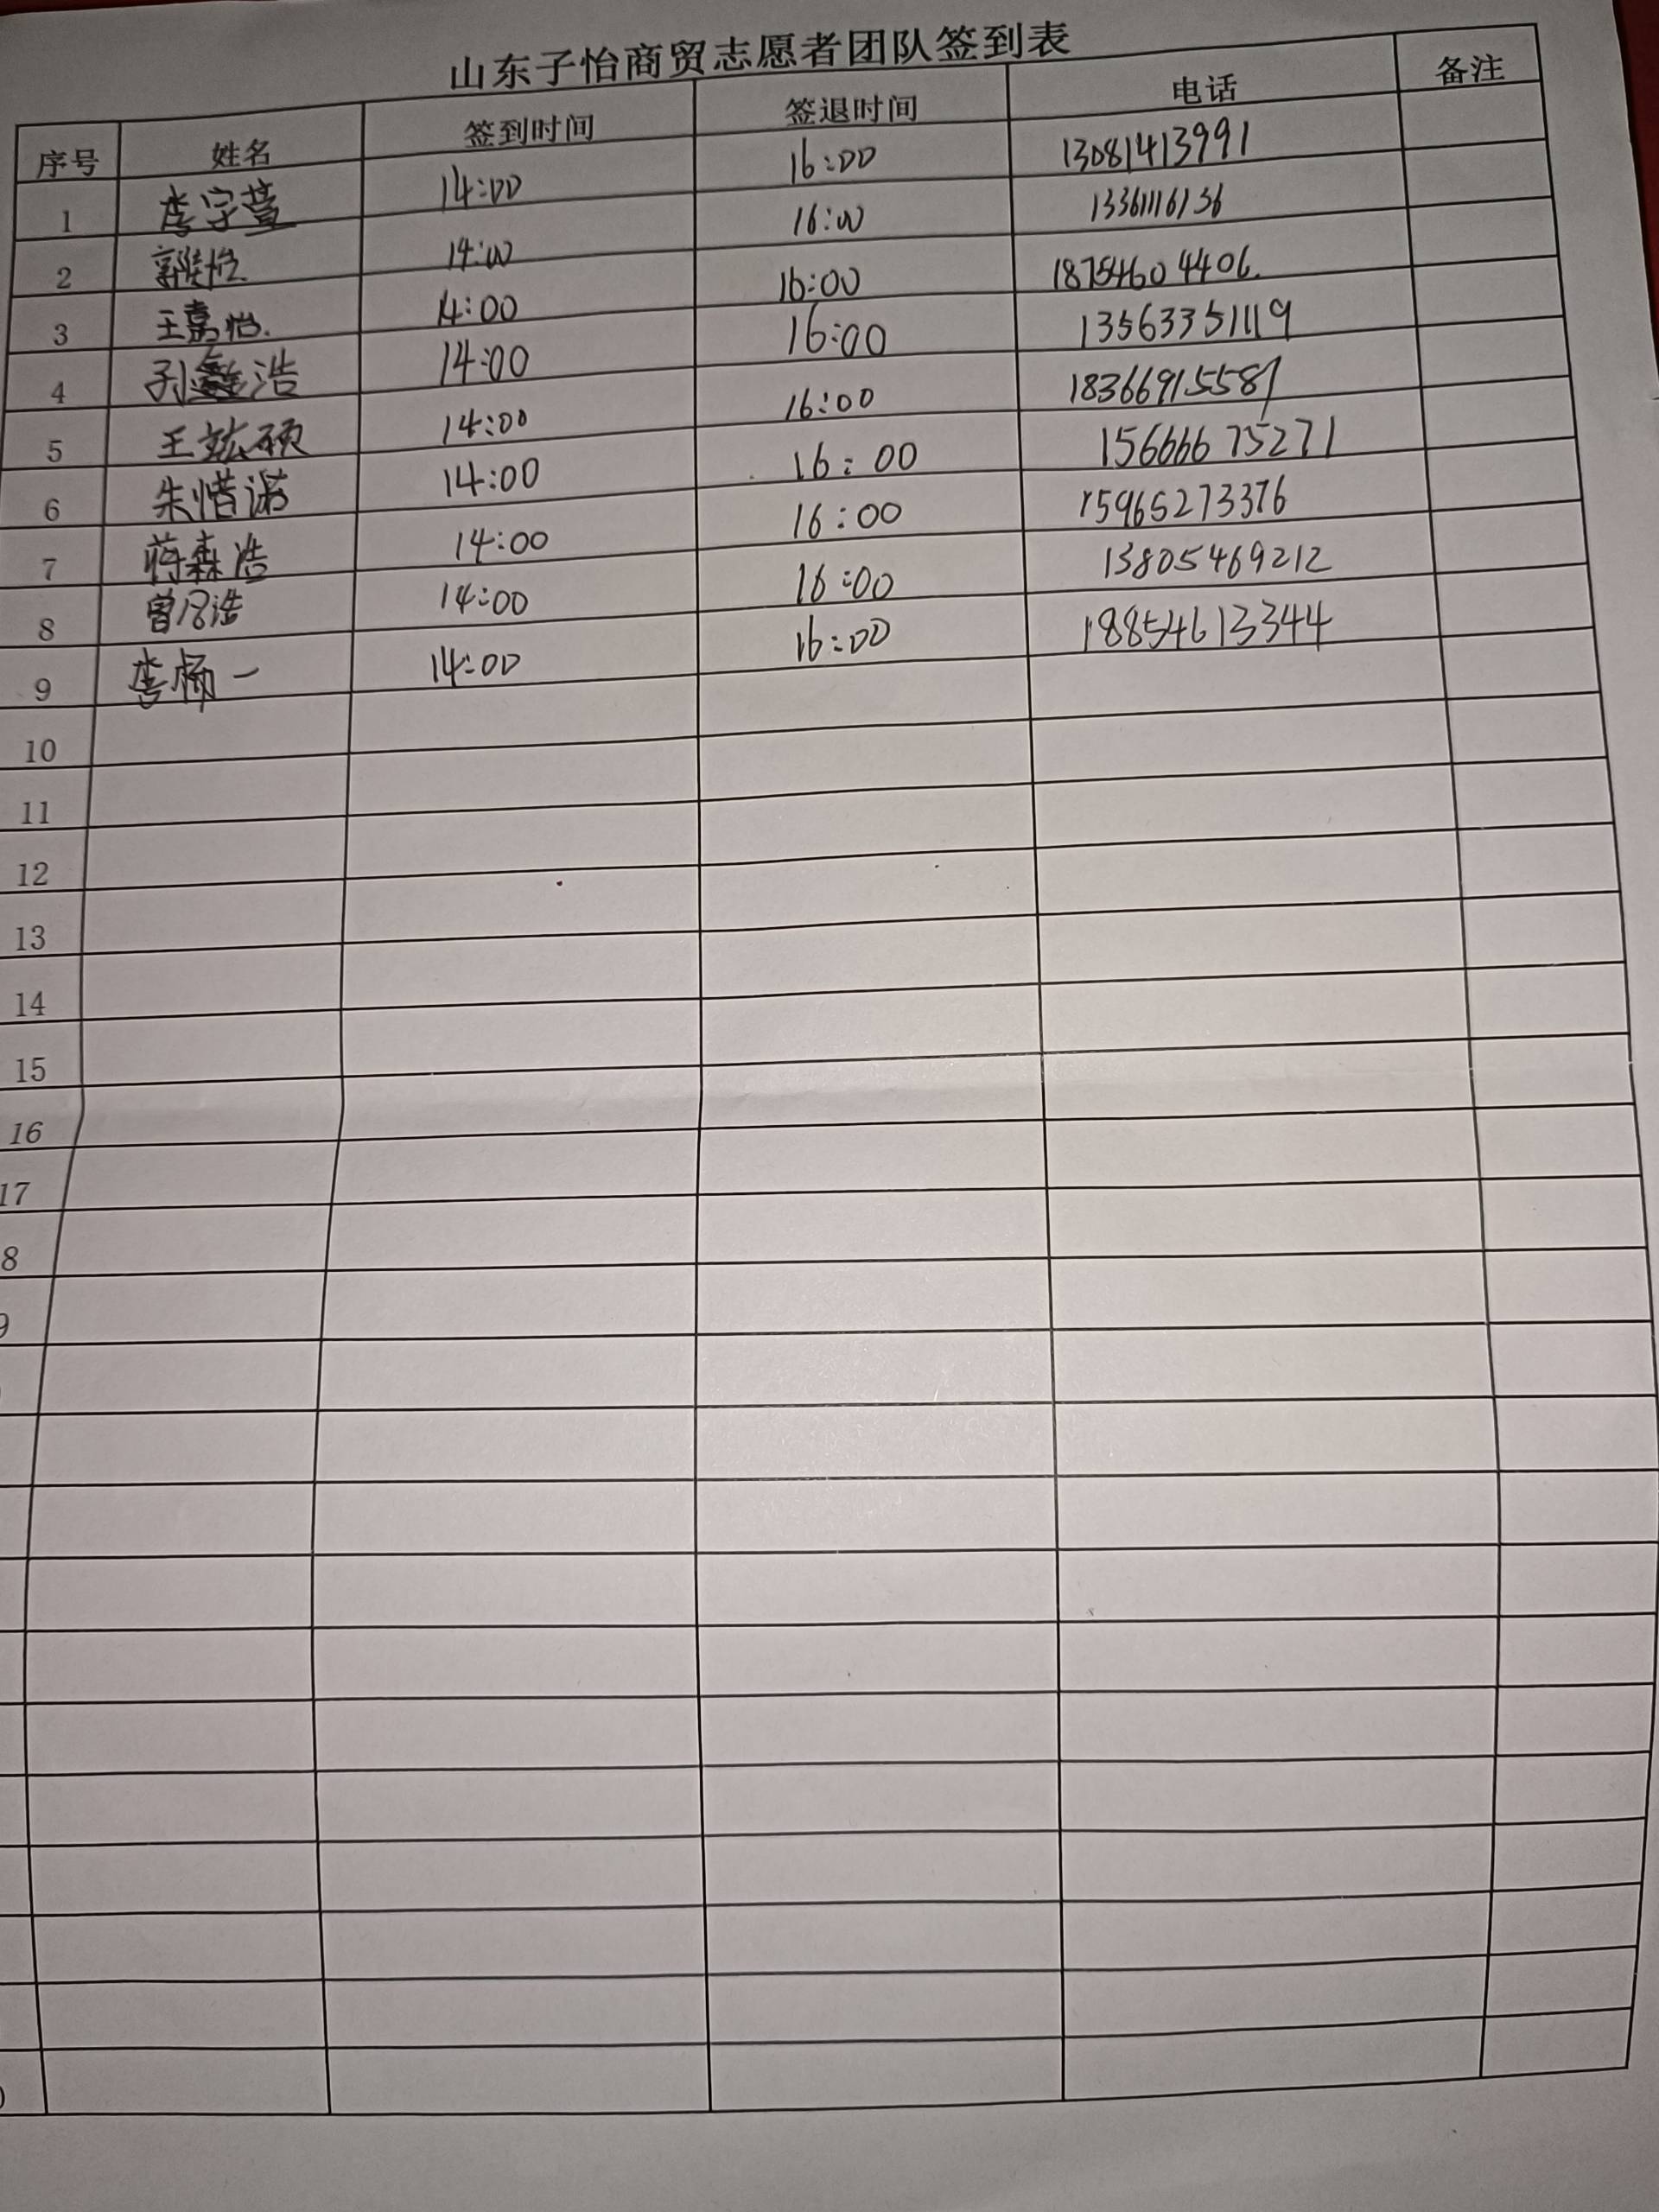 山东子怡商贸志愿者团队签到表
序号 姓名 签到时间 签退时间 电话 备注
1 李宇萱 14:00 16:00 13081413991
2 14:00 16:00 13361116136
3 王嘉怡. 14:00 16:00 18754604406.
4 孙鑫浩 14:00 16:00 13563351119
5 王竑硕 14:00 16:00 18366915587
6 朱惜诺 14:00 16:00 15666675271
7 蒋森浩 14:00 16:00 15965273376
8 14:00 16:00 13805469212
9 李杨一 14:00 16:00 18854613344
10
11
12
13
14
15
16
17
8
9